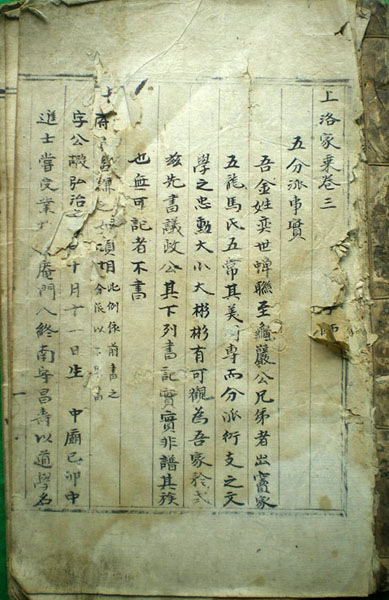 上洛家乘卷三
五分派事實
吾金姓奕世蟬聯至龜巖公兄弟者出竇家
五龍馬氏五常其美專而分派衍支之文
學之忠勳大小大彬彬有可觀為吾家於式
玆先書議政公其下列書記實實非譜其族
也無可記者不書
府 此例依前書之 分派以
字公嘏弘治十月十一日生 中廟己卯中
進士嘗受業庵門入終南守昌寺以道學名